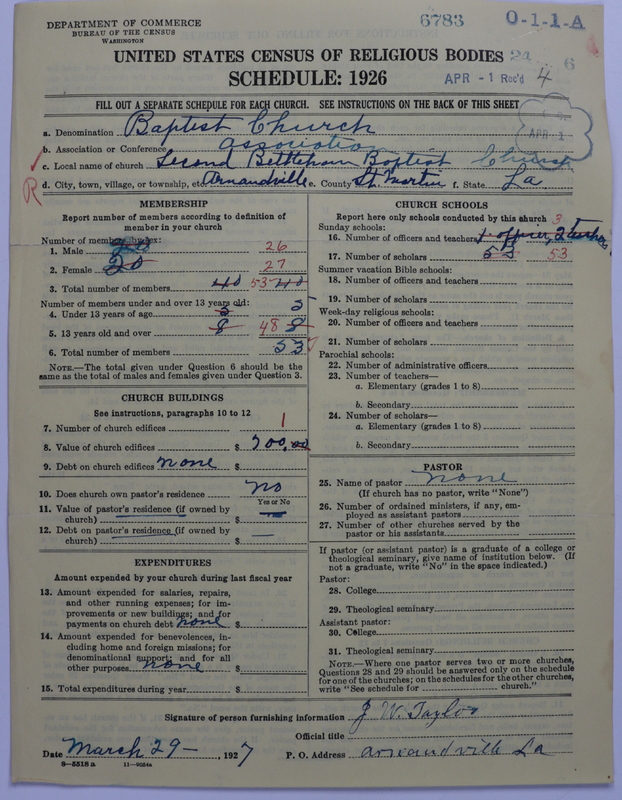 DEPARTMENT OF COMMERCE
BUREAU OF THE CENSUS
WASHINGTON
6783 O-1-1-A
UNITED STATES CENSUS OF RELIGIOUS BODIES
SCHEDULE: 1926
APR - 1 Rec'd 4
6
FILL OUT A SEPARATE SCHEDULE FOR EACH CHURCH. SEE INSTRUCTIONS ON THE BACK OF THIS SHEET
a. Denomination Baptist Church
b. Association or Conference association
c. Local name of church Second Bethlehem Baptist Church
R
d. City, town, village, or township, etc. Arnaudville e. County St. Martin f. State La
MEMBERSHIP
Report number of members according to definition of member in your church
Number of members by sex:
1. Male 26
2. Female 20 27
3. Total number of members 40 53 40
Number of members under and over 13 years old:
4. Under 13 years of age 5 5
5. 13 years old and over 8 48 8
6. Total number of members 53
NOTE.—The total given under Question 6 should be the same as the total of males and females given under Question 3.
CHURCH BUILDINGS
See instructions, paragraphs 10 to 12
7. Number of church edifices 1
8. Value of church edifices $ 700.00
9. Debt on church edifices none $
10. Does church own pastor's residence no
Yes or No
11. Value of pastor's residence (if owned by church) $ —
12. Debt on pastor's residence (if owned by church) $ —
EXPENDITURES
Amount expended by your church during last fiscal year
13. Amount expended for salaries, repairs, and other running expenses; for improvements or new buildings; and for payments on church debt none $
14. Amount expended for benevolences, including home and foreign missions; for denominational support; and for all other purposes none $
15. Total expenditures during year $
CHURCH SCHOOLS
Report here only schools conducted by this church
Sunday schools: 3
16. Number of officers and teachers 1 officer, 2 teachers
17. Number of scholars 53 53
Summer vacation Bible schools:
18. Number of officers and teachers
19. Number of scholars
Week-day religious schools:
20. Number of officers and teachers
21. Number of scholars
Parochial schools:
22. Number of administrative officers
23. Number of teachers—
a. Elementary (grades 1 to 8)
b. Secondary
24. Number of scholars—
a. Elementary (grades 1 to 8)
b. Secondary
PASTOR
25. Name of pastor none
(If church has no pastor, write "None")
26. Number of ordained ministers, if any, employed as assistant pastors
27. Number of other churches served by the pastor or his assistants
If pastor (or assistant pastor) is a graduate of a college or theological seminary, give name of institution below. (If not a graduate, write "No" in the space indicated.)
Pastor:
28. College
29. Theological seminary
Assistant pastor:
30. College
31. Theological seminary
NOTE.—Where one pastor serves two or more churches, Questions 28 and 29 should be answered only on the schedule for one of the churches; on the schedules for the other churches, write "See schedule for church."
Signature of person furnishing information J. W. Taylor
Official title
Date March 29 — , 1927 P. O. Address arnaudville La
8—5518 a